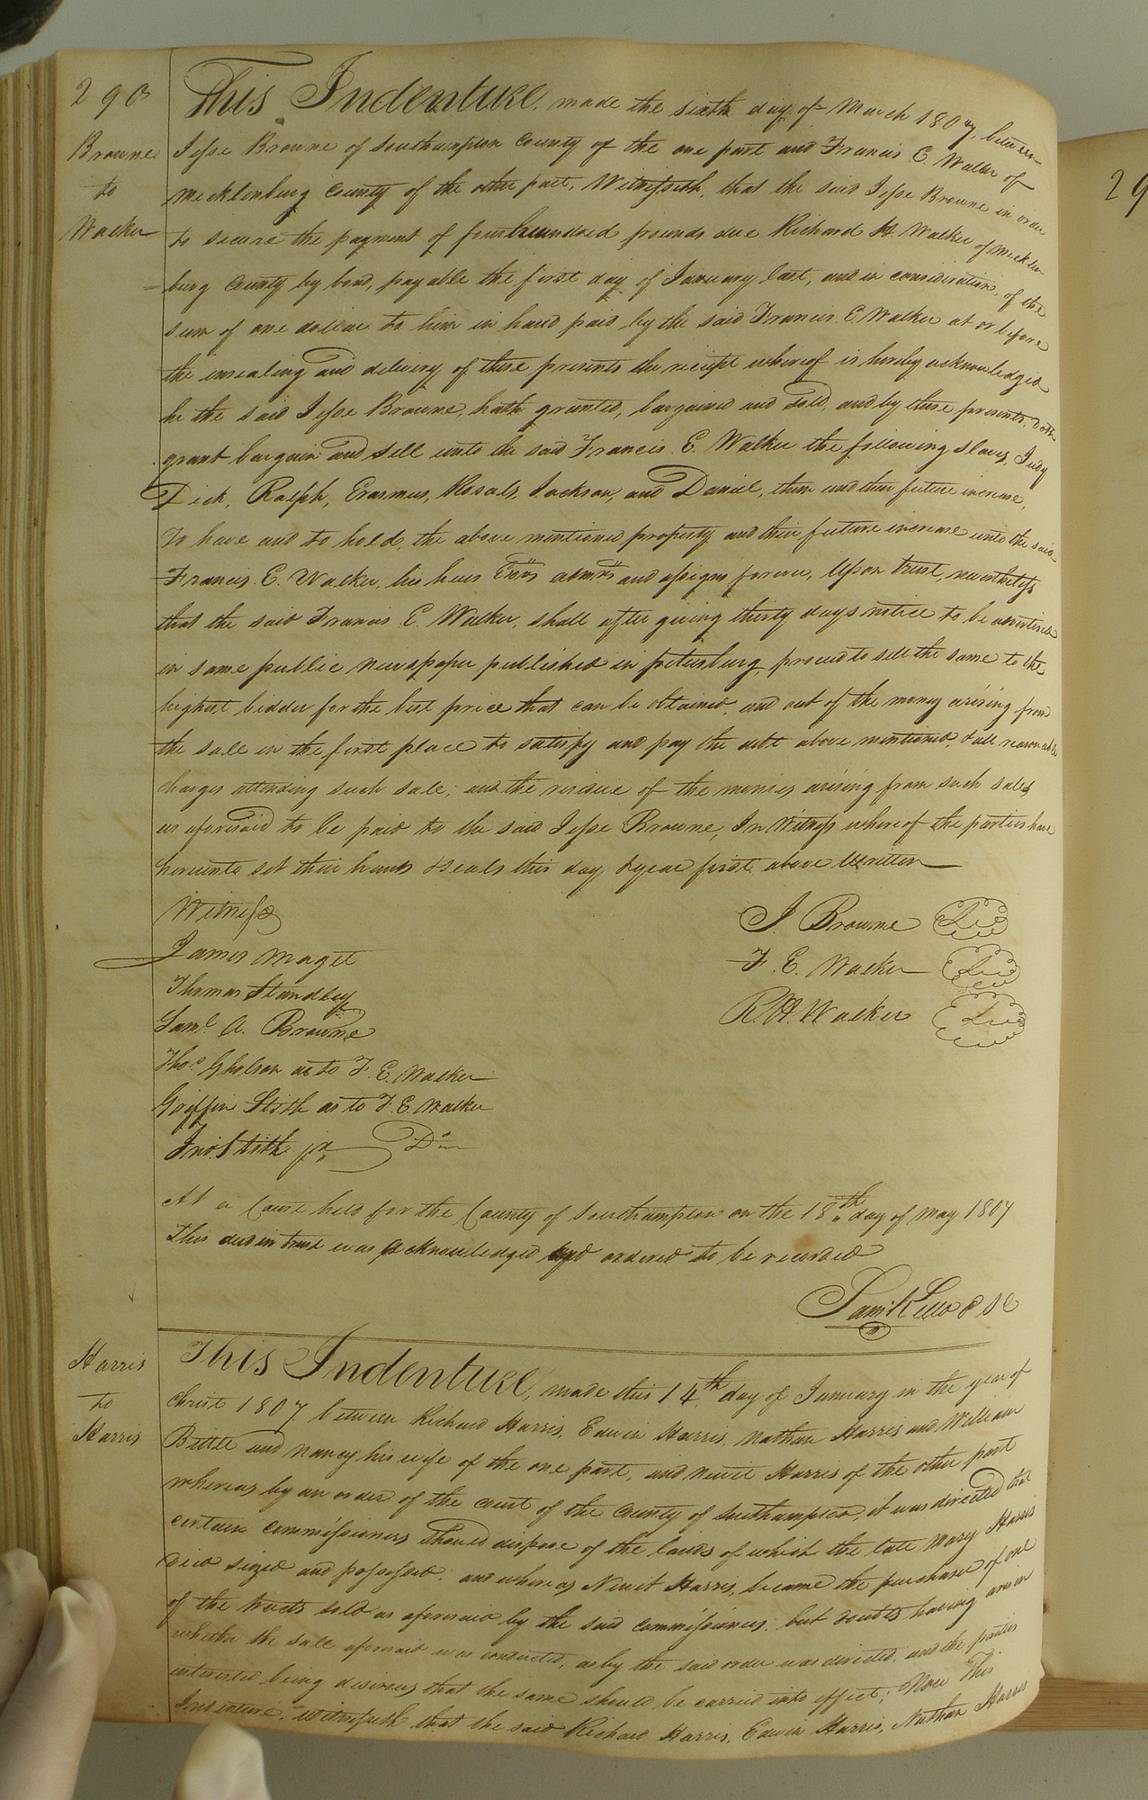 290
Browne
to
Walker
This Indenture, made the sixth day of March 1807, between
Jesse Browne of Southampton County of the one part and Francis E. Walker of
Mecklenburg County of the other part, Witnesseth, that the said Jesse Browne in order
to secure the payment of four hundred pounds due Richard H. Walker of Mecklen
=burg County by bond, payable the first day of January last, and in consideration of the
sum of one dollar to him in hand paid by the said Francis E Walker at or before
the ensealing and delivery of these presents the receipt whereof is hereby acknowledged
he the said Jesse Browne, hath granted, bargained and Sold, and by these presents, doth
grant bargain and Sell unto the said Francis E. Walker the following slaves, Judy
Dick, Ralph, Erasmus, Jackson, and Daniel, them and their future increase,
To have and to hold, the above mentioned property and their future increase unto the said
Francis E. Walker, his heirs Exors admrs and assigns forever, Upon trust, nevertheless
that the said Francis E. Walker, shall after giving thirty days notice to be advertised
in some public newspaper published in petersburg, proceed to sell the same to the
highest bidder for the best price that can be obtained, and out of the money arising from
the sale in the first place to satisfy and pay the debt above mentioned, & all reasonable
charges attending such sale; and the residue of the monies arising from such sales
as aforesaid to be paid to the said Jesse Browne, In Witness whereof the parties have
hereunto set their hands & seals this day & year first above Written
Witness
James Maget
Thomas Standley
Saml A. Browne
Thos Gholson as to F. E. Walker
Griffin Stith as to F. E. Walker
Jno. Stith jr Do
J Browne Ls
F. E. Walker Ls
R. H. Walker Ls
At a Court held for the County of Southampton on the 18th day of May 1807
This deed in trust was acknowledged and ordered to be recorded
Saml Kello
Harris
to
Harris
This Indenture, made this 14th day of January in the year of
Christ 1807 between Richard Harris, Edwin Harris, Nathan Harris and William
Bittle and Nancy his wife of the one part, and Newit Harris of the other part
whereas by an order of the court of the County of Southampton, it was directed that
certain commissioners should dispose of the lands of which the late Mary Harris
died siezed and possessed: and whereas Newit Harris, became the purchaser of one
of the tracts sold as aforesaid by the said commissioners, but doubts having arisen
whether the sale aforesaid was conducted, as by the said order was directed, and the parties
interested being desirous that the same should be carried into effect; Now This
Indenture, witnesseth that the said Richard Harris, Edwin Harris, Nathan Harris
29